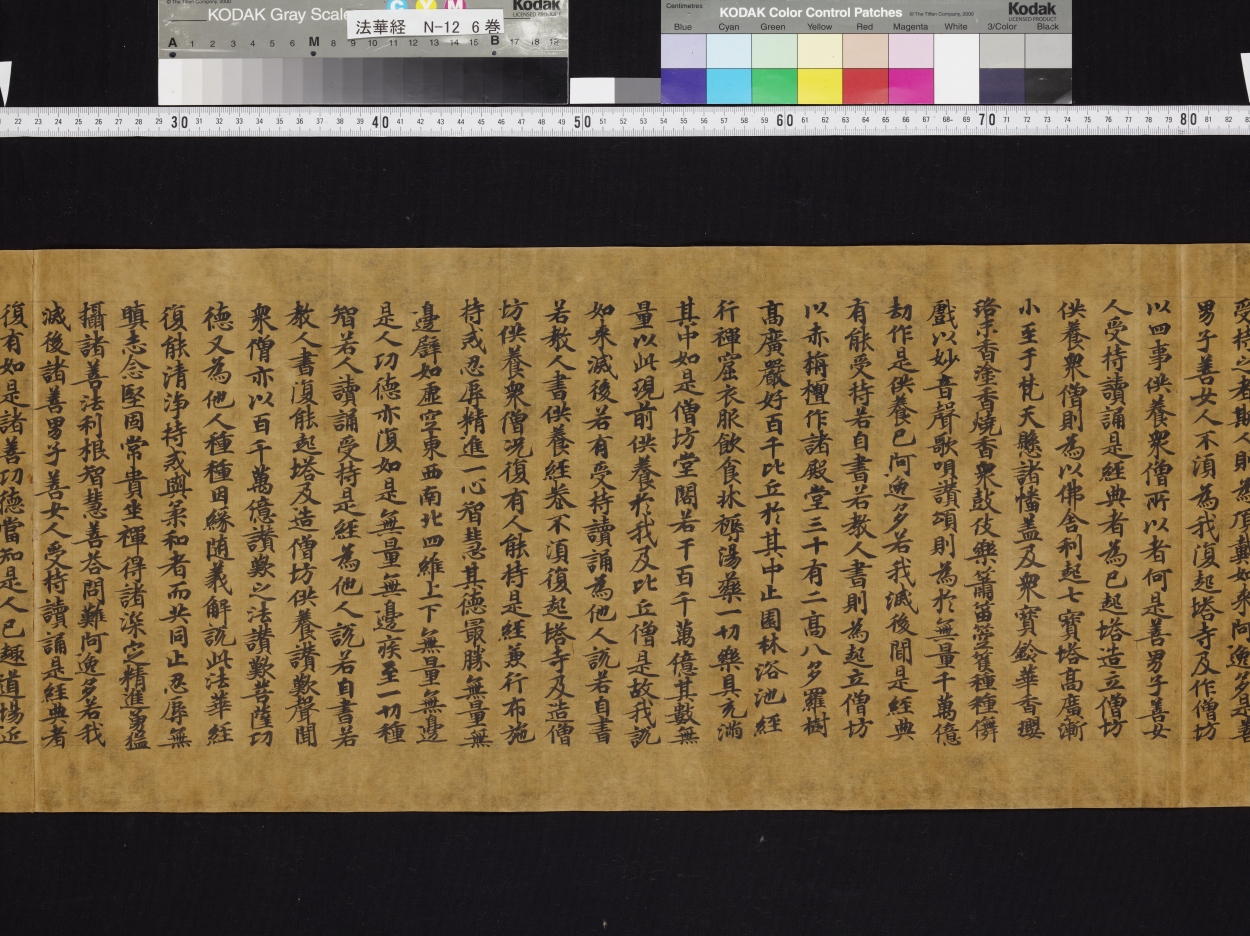 KODAK Gray Scale
Kodak
LICENSED PRODUCT
C Y M
法華経 N-12 6巻
A 1 2 3 4 5 6 M 8 9 10 11 12 13 14 15 B 17 18 19
Centimetres
KODAK Color Control Patches
© The Tiffen Company, 2000
Kodak
LICENSED PRODUCT
Blue Cyan Green Yellow Red Magenta White 3/Color Black
22 23 24 25 26 27 28 29 30 31 32 33 34 35 36 37 38 39 40 41 42 43 44 45 46 47 48 49 50 51 52 53 54 55 56 57 58 59 60 61 62 63 64 65 66 67 68 69 70 71 72 73 74 75 76 77 78 79 80 81 82
受持之者斯人則為頂戴如来阿逸多是善
男子善女人不須為我復起塔寺及作僧坊
以四事供養衆僧所以者何是善男子善女
人受持讀誦是經典者為已起塔造立僧坊
供養衆僧則為以佛舍利起七寶塔高廣漸
小至于梵天懸諸幡盖及衆寶鈴華香瓔
珞末香塗香燒香衆鼓伎樂簫笛箜篌種種儛
戲以妙音聲歌唄讃頌則為於無量千萬億
劫作是供養已阿逸多若我滅後聞是經典
有能受持若自書若教人書則為起立僧坊
以赤栴檀作諸殿堂三十有二高八多羅樹
高廣嚴好百千比丘於其中止園林浴池經
行禪窟衣服飲食牀褥湯藥一切樂具充滿
其中如是僧坊堂閣若干百千萬億其數無
量以此現前供養於我及比丘僧是故我說
如来滅後若有受持讀誦為他人說若自書
若教人書供養經卷不須復起塔寺及造僧
坊供養衆僧況復有人能持是經兼行布施
持戒忍辱精進一心智慧其德最勝無量無
邊譬如虛空東西南北四維上下無量無邊
是人功德亦復如是無量無邊疾至一切種
智若人讀誦受持是經為他人說若自書若
教人書復能起塔及造僧坊供養讃歎聲聞
衆僧亦以百千萬億讃歎之法讃歎菩薩功
德又為他人種種因緣随義解說此法華經
復能清淨持戒與柔和者而共同止忍辱無
瞋志念堅固常貴坐禪得諸深定精進勇猛
攝諸善法利根智慧善答問難阿逸多若我
滅後諸善男子善女人受持讀誦是經典者
復有如是諸善功德當知是人已趣道場近